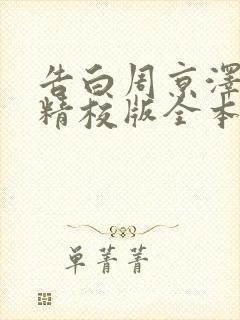 告白周京澤
精校版全本
单菁菁